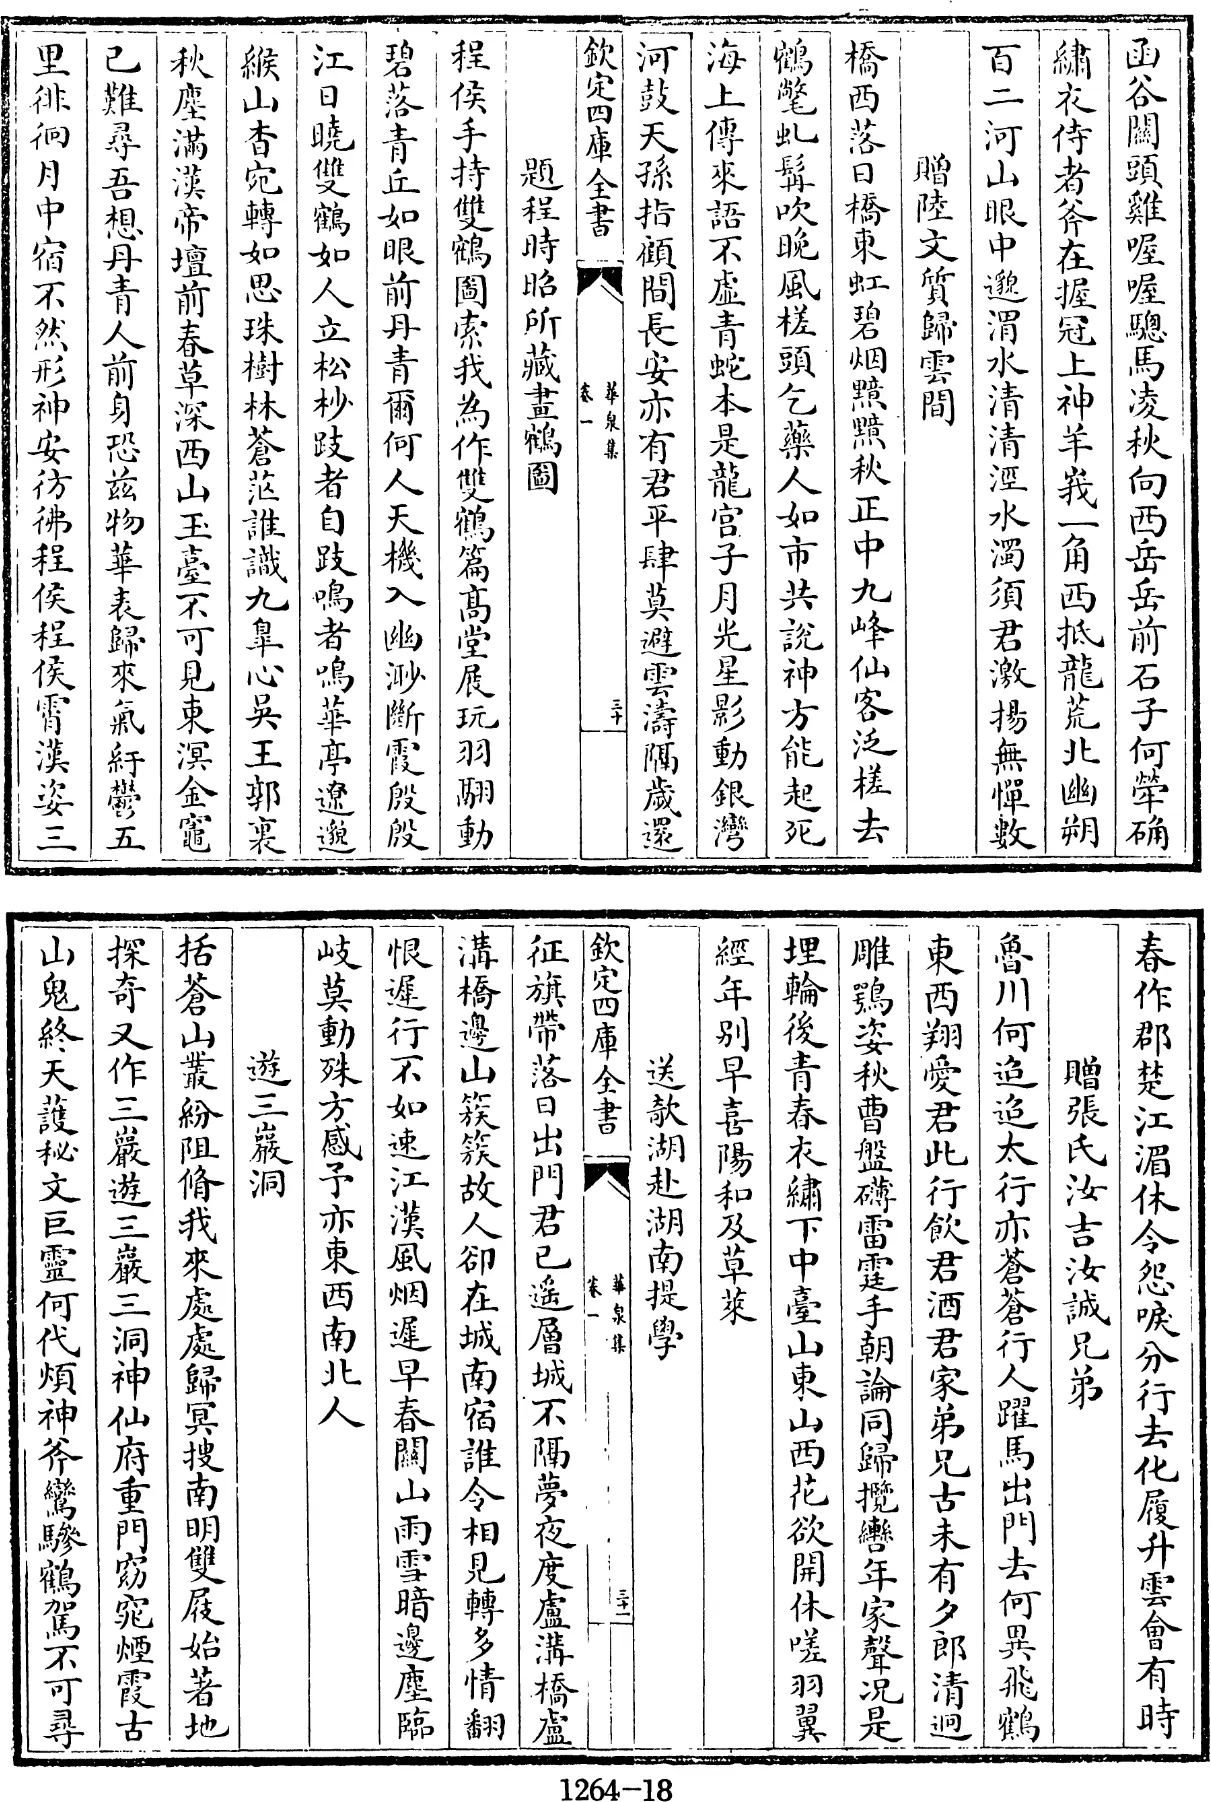 函谷關頭雞喔喔驄馬凌秋向西岳岳前石子何犖确
繡衣侍者斧在握冠上神羊峩一角西抵龍荒北幽朔
百二河山眼中邈渭水清清涇水濁須君激揚無憚數
贈陸文質歸雲間
橋西落日橋東虹碧烟黯黯秋正中九峰仙客泛槎去
鶴氅虬髯吹晚風槎頭乞藥人如市共說神方能起死
海上傳來語不虛青蛇本是龍宫子月光星影動銀灣
河鼓天孫指顧間長安亦有君平肆莫避雲濤隔歲還
欽定四庫全書
華泉集
卷一
三十
題程時昭所藏畫鶴圖
程侯手持雙鶴圖索我為作雙鶴篇髙堂展玩羽翮動
碧落青丘如眼前丹青爾何人天機入幽渺斷霞殷殷
江日曉雙鶴如人立松杪跂者自跂鳴者鳴華亭遼邈
緱山杳宛轉如思珠樹林蒼茫誰識九臯心吳王郭裏
秋塵滿漢帝壇前春草深西山玉臺不可見東溟金竈
已難尋吾想丹青人前身恐兹物華表歸來氣紆鬱五
里徘徊月中宿不然形神安彷彿程侯程侯霄漢姿三
春作郡楚江湄休令怨唳分行去化履升雲會有時
贈張氏汝吉汝誠兄弟
魯川何迢迢太行亦蒼蒼行人躍馬出門去何異飛鶴
東西翔愛君此行飲君酒君家弟兄古未有夕郎清迥
雕鶚姿秋曹盤礴雷霆手朝論同歸攬轡年家聲况是
埋輪後青春衣繡下中臺山東山西花欲開休嗟羽翼
經年别早喜陽和及草萊
送欹湖赴湖南提學
征旗帶落日出門君已遥層城不隔夢夜度盧溝橋盧
溝橋邊山簇簇故人卻在城南宿誰令相見轉多情翻
恨遲行不如速江漢風烟遲早春關山雨雪暗邊塵臨
岐莫動殊方感予亦東西南北人
欽定四庫全書
華泉集
卷一
三十一
遊三巖洞
括蒼山叢紛阻脩我來處處歸冥搜南明雙屐始著地
探奇又作三巖遊三巖三洞神仙府重門窈窕煙霞古
山鬼終天護秘文巨靈何代煩神斧鸞驂鶴駕不可尋
1264-18